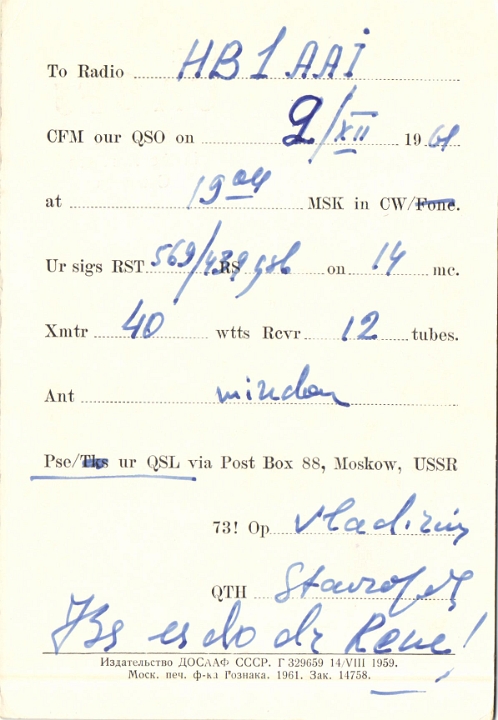 To Radio HB1AAI
CFM our QSO on 9/XII 1961
at 19 04 MSK in CW/Fone.
Ur sigs RST 569/439 RS qsb on 14 mc.
Xmtr 40 wtts Rcvr 12 tubes.
Ant
Pse/Tks ur QSL via Post Box 88, Moskow, USSR
73! Op Vladimir
QTH
es do dr Rene!
Издательство ДОСААФ СССР. Г 329659 14/VIII 1959.
Моск. печ. ф-ка Гознака. 1961. Зак. 14758.